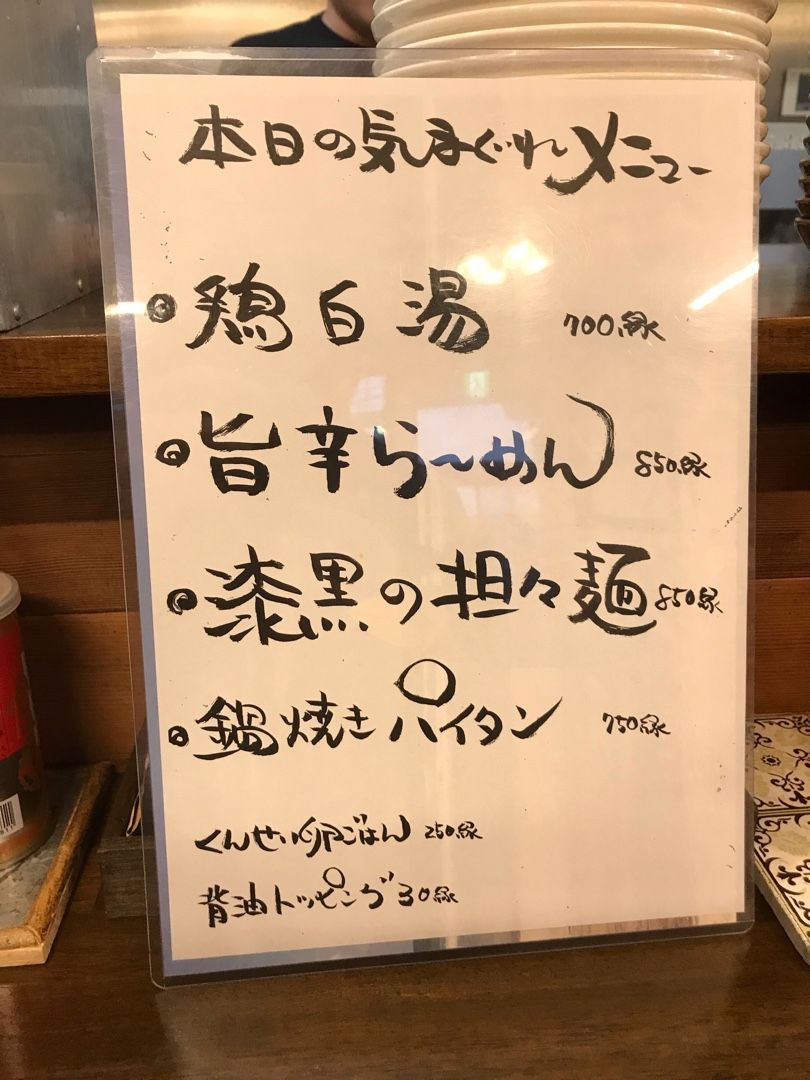 本日の気まぐれメニュー
鶏白湯 700縁
旨辛ら〜めん 850縁
漆黒の担々麺 850縁
鍋焼きパイタン 750縁
くんせい卵ごはん 250縁
背油トッピング 30縁